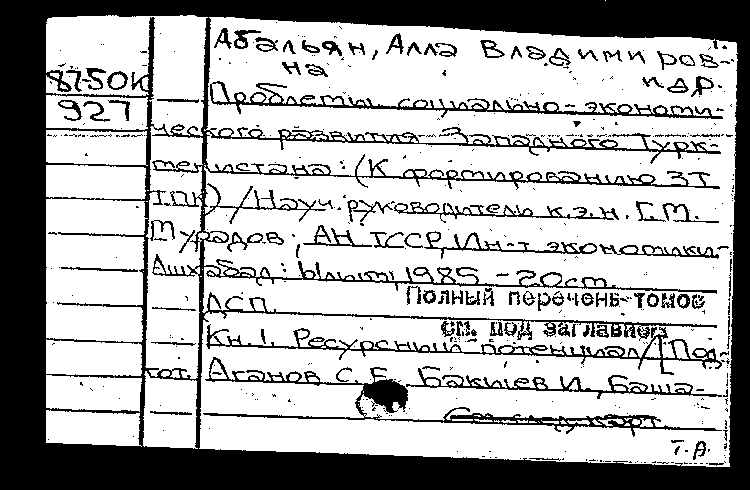 1.
Абальян, Алла Владимиров-
на и др.
87-50К
927
Проблемы социально-экономи-
ческого развития Западного Турк-
менистана: (К формированию ЗТ
ТПК) / Науч. руководитель к.э.н. Г.М.
Мурадов; АН ТССР, Ин-т экономики.-
Ашхабад: Ылым, 1985 - 20см.
ДСП.
Полный перечень томов
см. под заглавием
Кн. 1. Ресурсный потенциал / [Под-
гот. Аганов С.Г., Бакиев И., Баша-
См. след. карт.
Т.А.